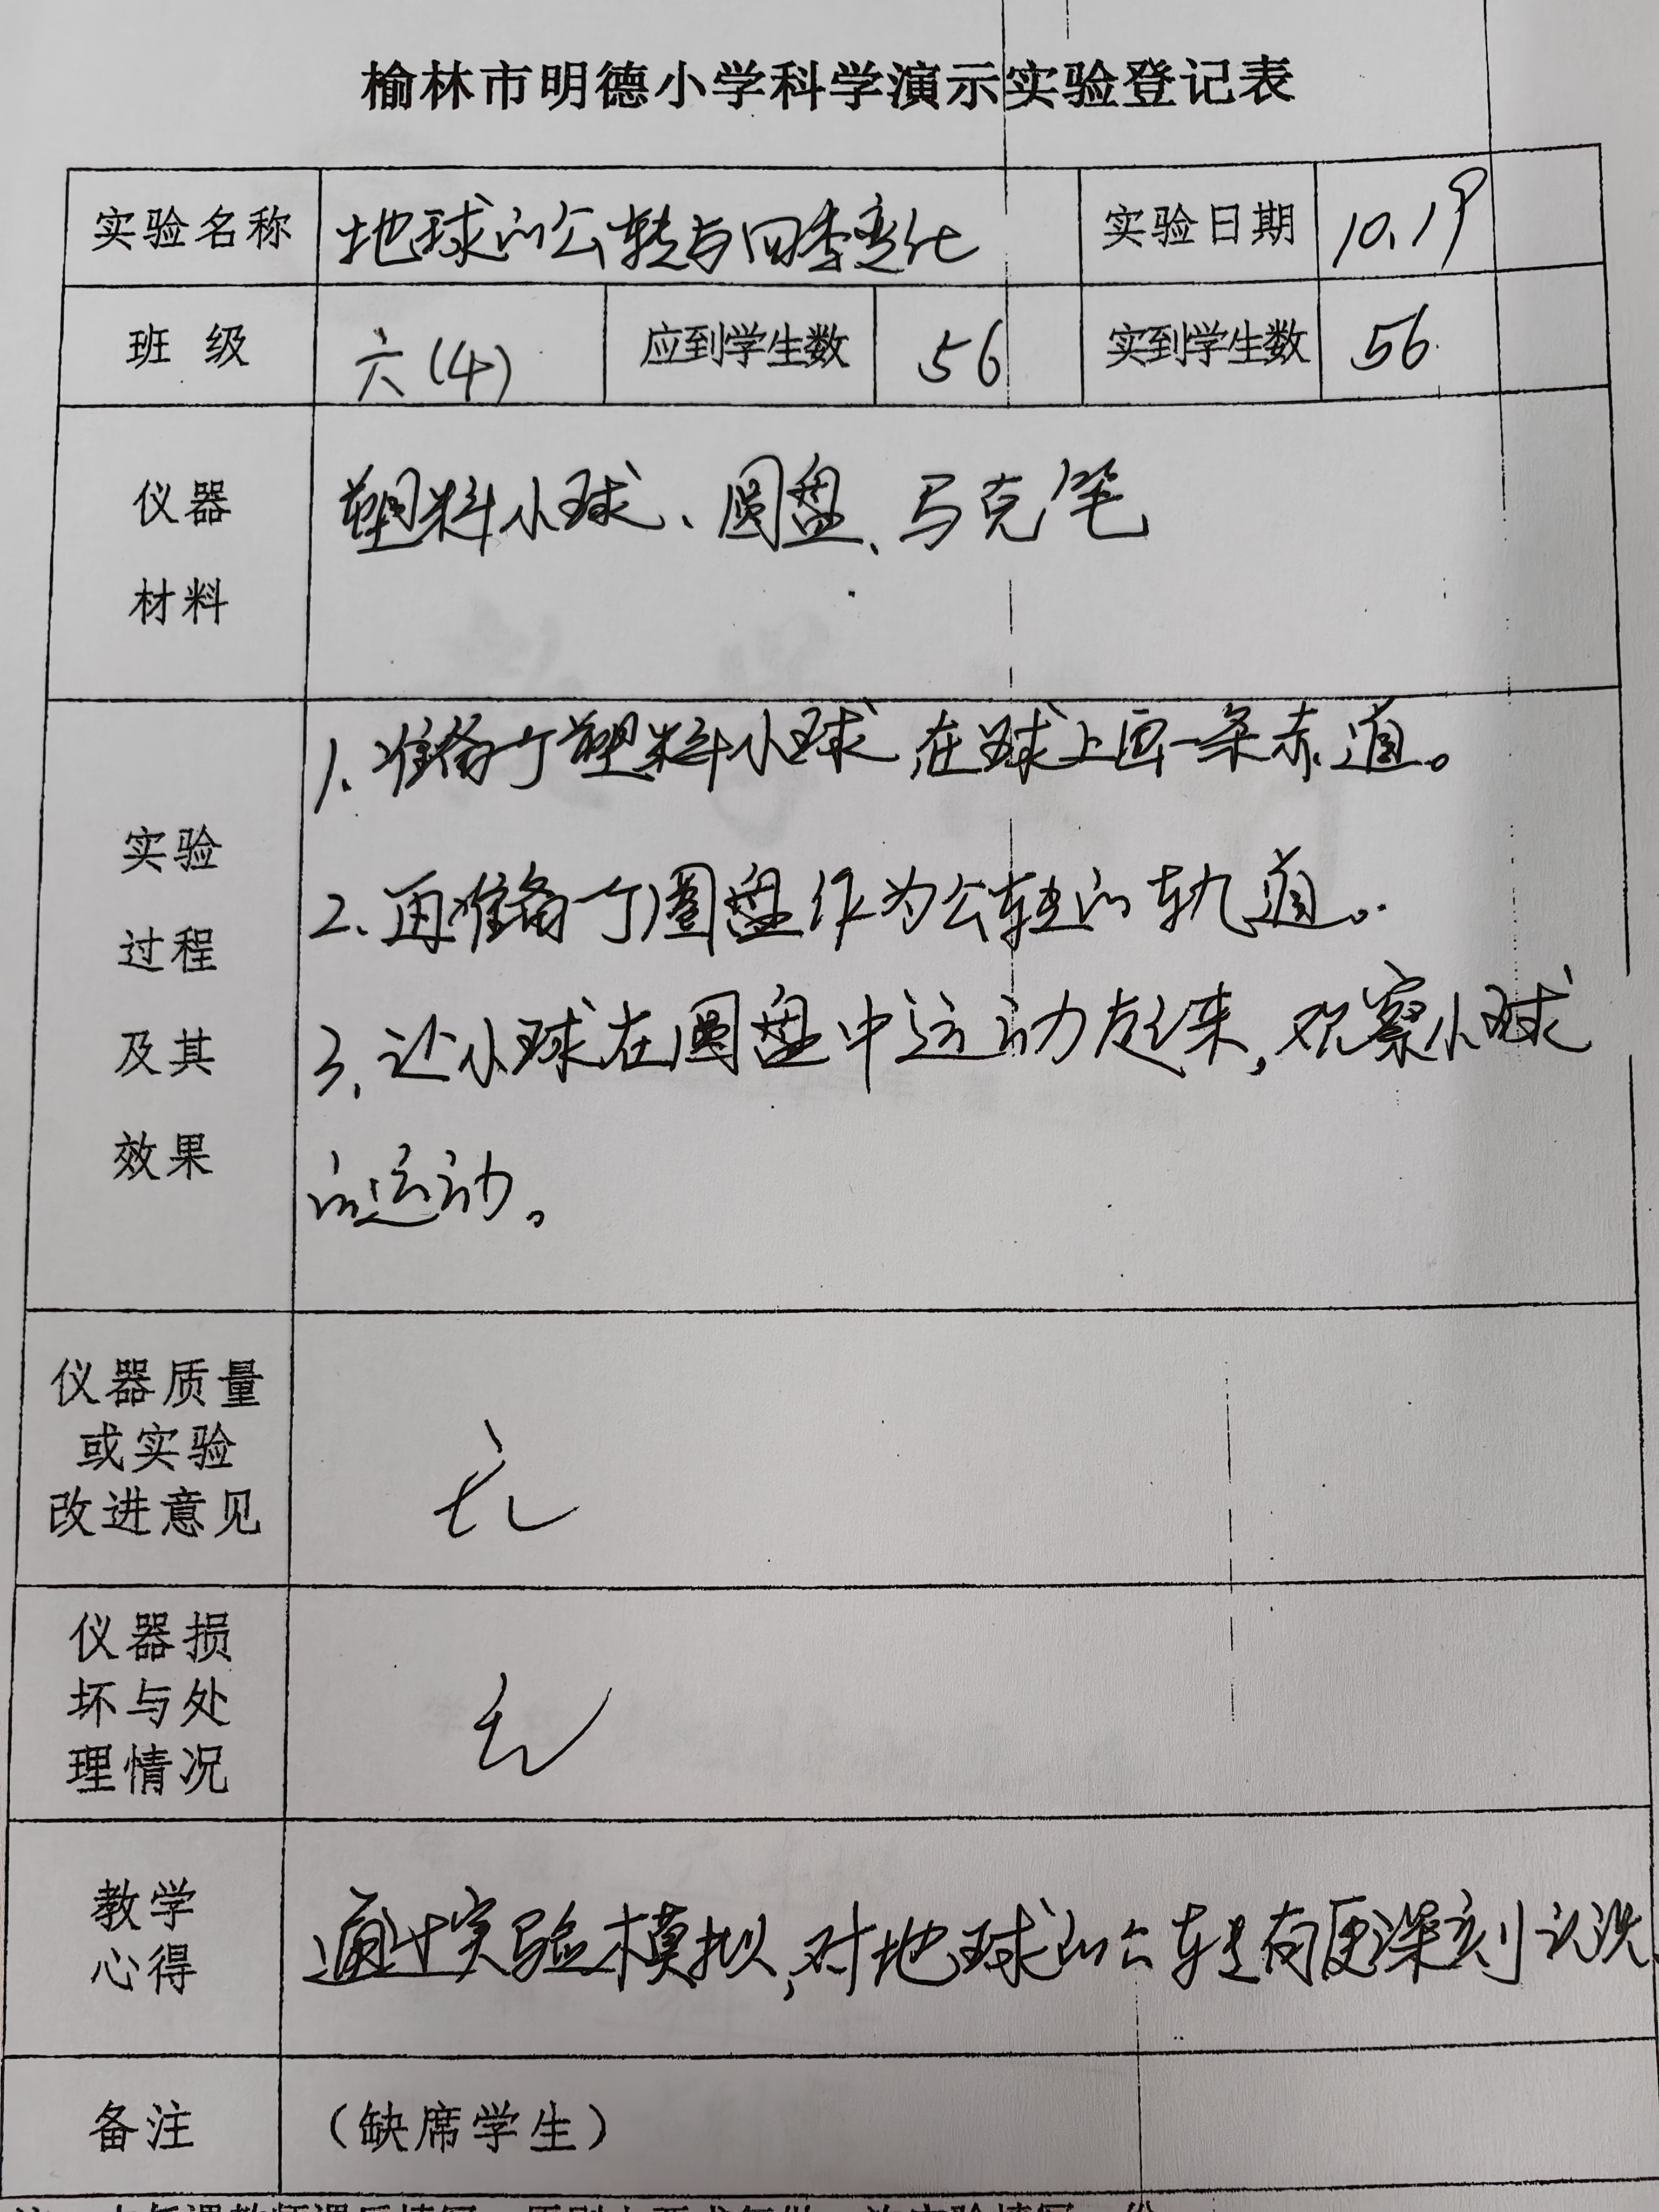 榆林市明德小学科学演示实验登记表
实验名称 地球的公转与四季变化 实验日期 10.19
班级 六(4) 应到学生数 56 实到学生数 56
仪器
材料
塑料小球、圆盘、马克笔
实验
过程
及其
效果
1、准备一个塑料小球 在球上画一条赤道。
2、再准备一个圆盘作为公转的轨道。
3、让小球在圆盘中运动起来,观察小球
的运动。
仪器质量
或实验
改进意见
无
仪器损
坏与处
理情况
无
教学
心得
通过实验模拟,对地球的公转有更深刻认识
备注 (缺席学生)